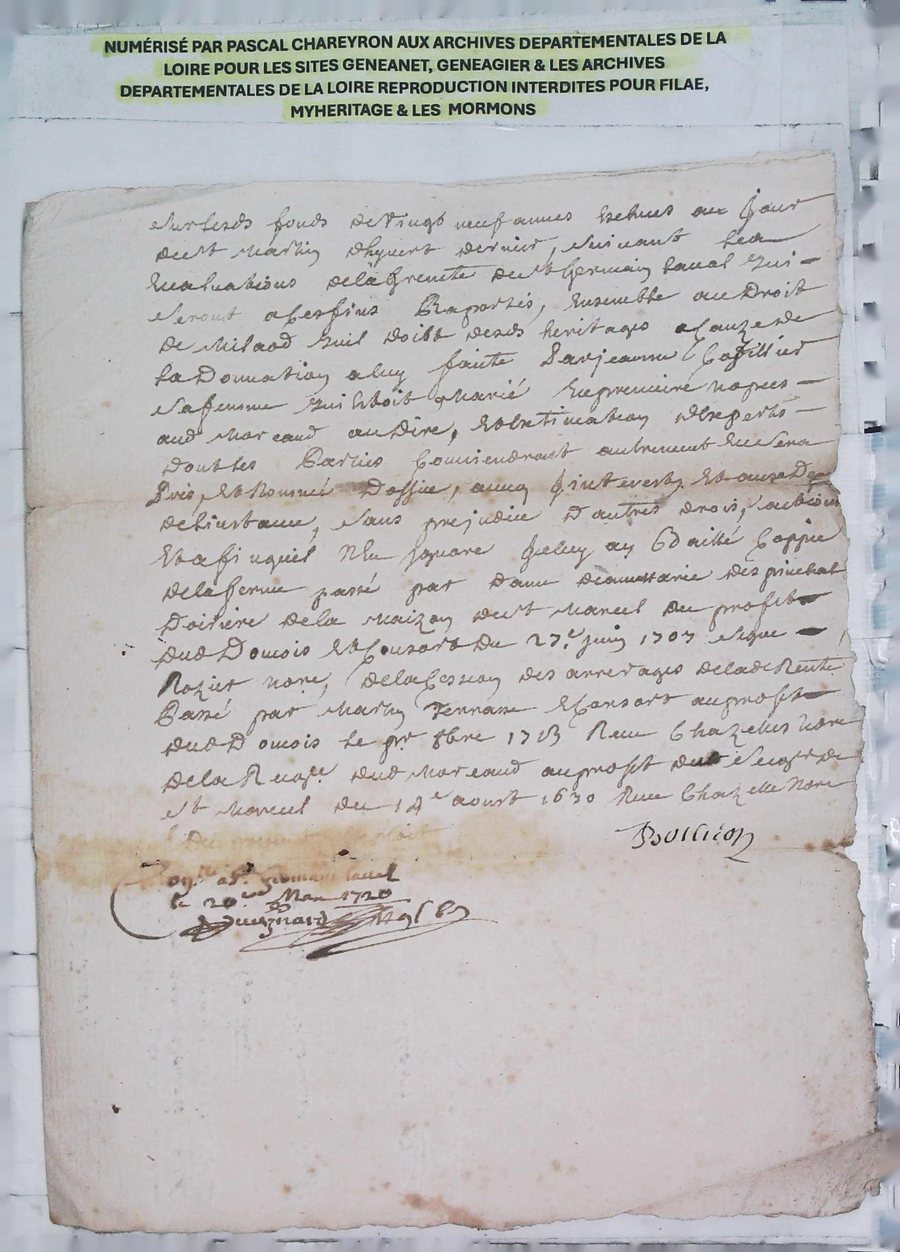 NUMÉRISÉ PAR PASCAL CHAREYRON AUX ARCHIVES DEPARTEMENTALES DE LA
LOIRE POUR LES SITES GENEANET, GENEAGIER & LES ARCHIVES
DEPARTEMENTALES DE LA LOIRE REPRODUCTION INTERDITES POUR FILAE,
MYHERITAGE & LES MORMONS
sur lesds fonds de vingt neuf annes escheus au jour
de st Martin dhyvert dernier, suivant les
Evaluations de la grenette de st Germain Laval qui
seront a ces fins Raportés, Ensemble au Droit
de Milaod quil doibt desds heritages a cauze de
la Donnation a luy faitte par jeanne
sa femme qui estoit Marié En premiere nopces
aud Moreaud au dire, Et Estimation dexperts
dont les Parties Conviendront autrement En sera
pris Et nommé Doffice, aux jnterests Et aux Depens
de linstance, sans prejudice Dautres droits,
Et afin quil Nen jgnore je luy ay Baillé Coppie
de la ferme passé par dame despinchal
Doiriere de la Maizon de st Marcel du profit
dud Domois Et Consort du 27e juin 1707
Rozier nore, de la Cession des arrerages de lade Rente
Passé par Martin Terrasse & Consort au profit
dud Domois le pr 8bre 1713 Receu Chazelles nore
de la dud Moreaud au profit du seigr de
st Marcel du aoust 1630 Receu Chazelle Nore
du present Exploit
Bouillon
a st germain laval
le 20e Mars 1720